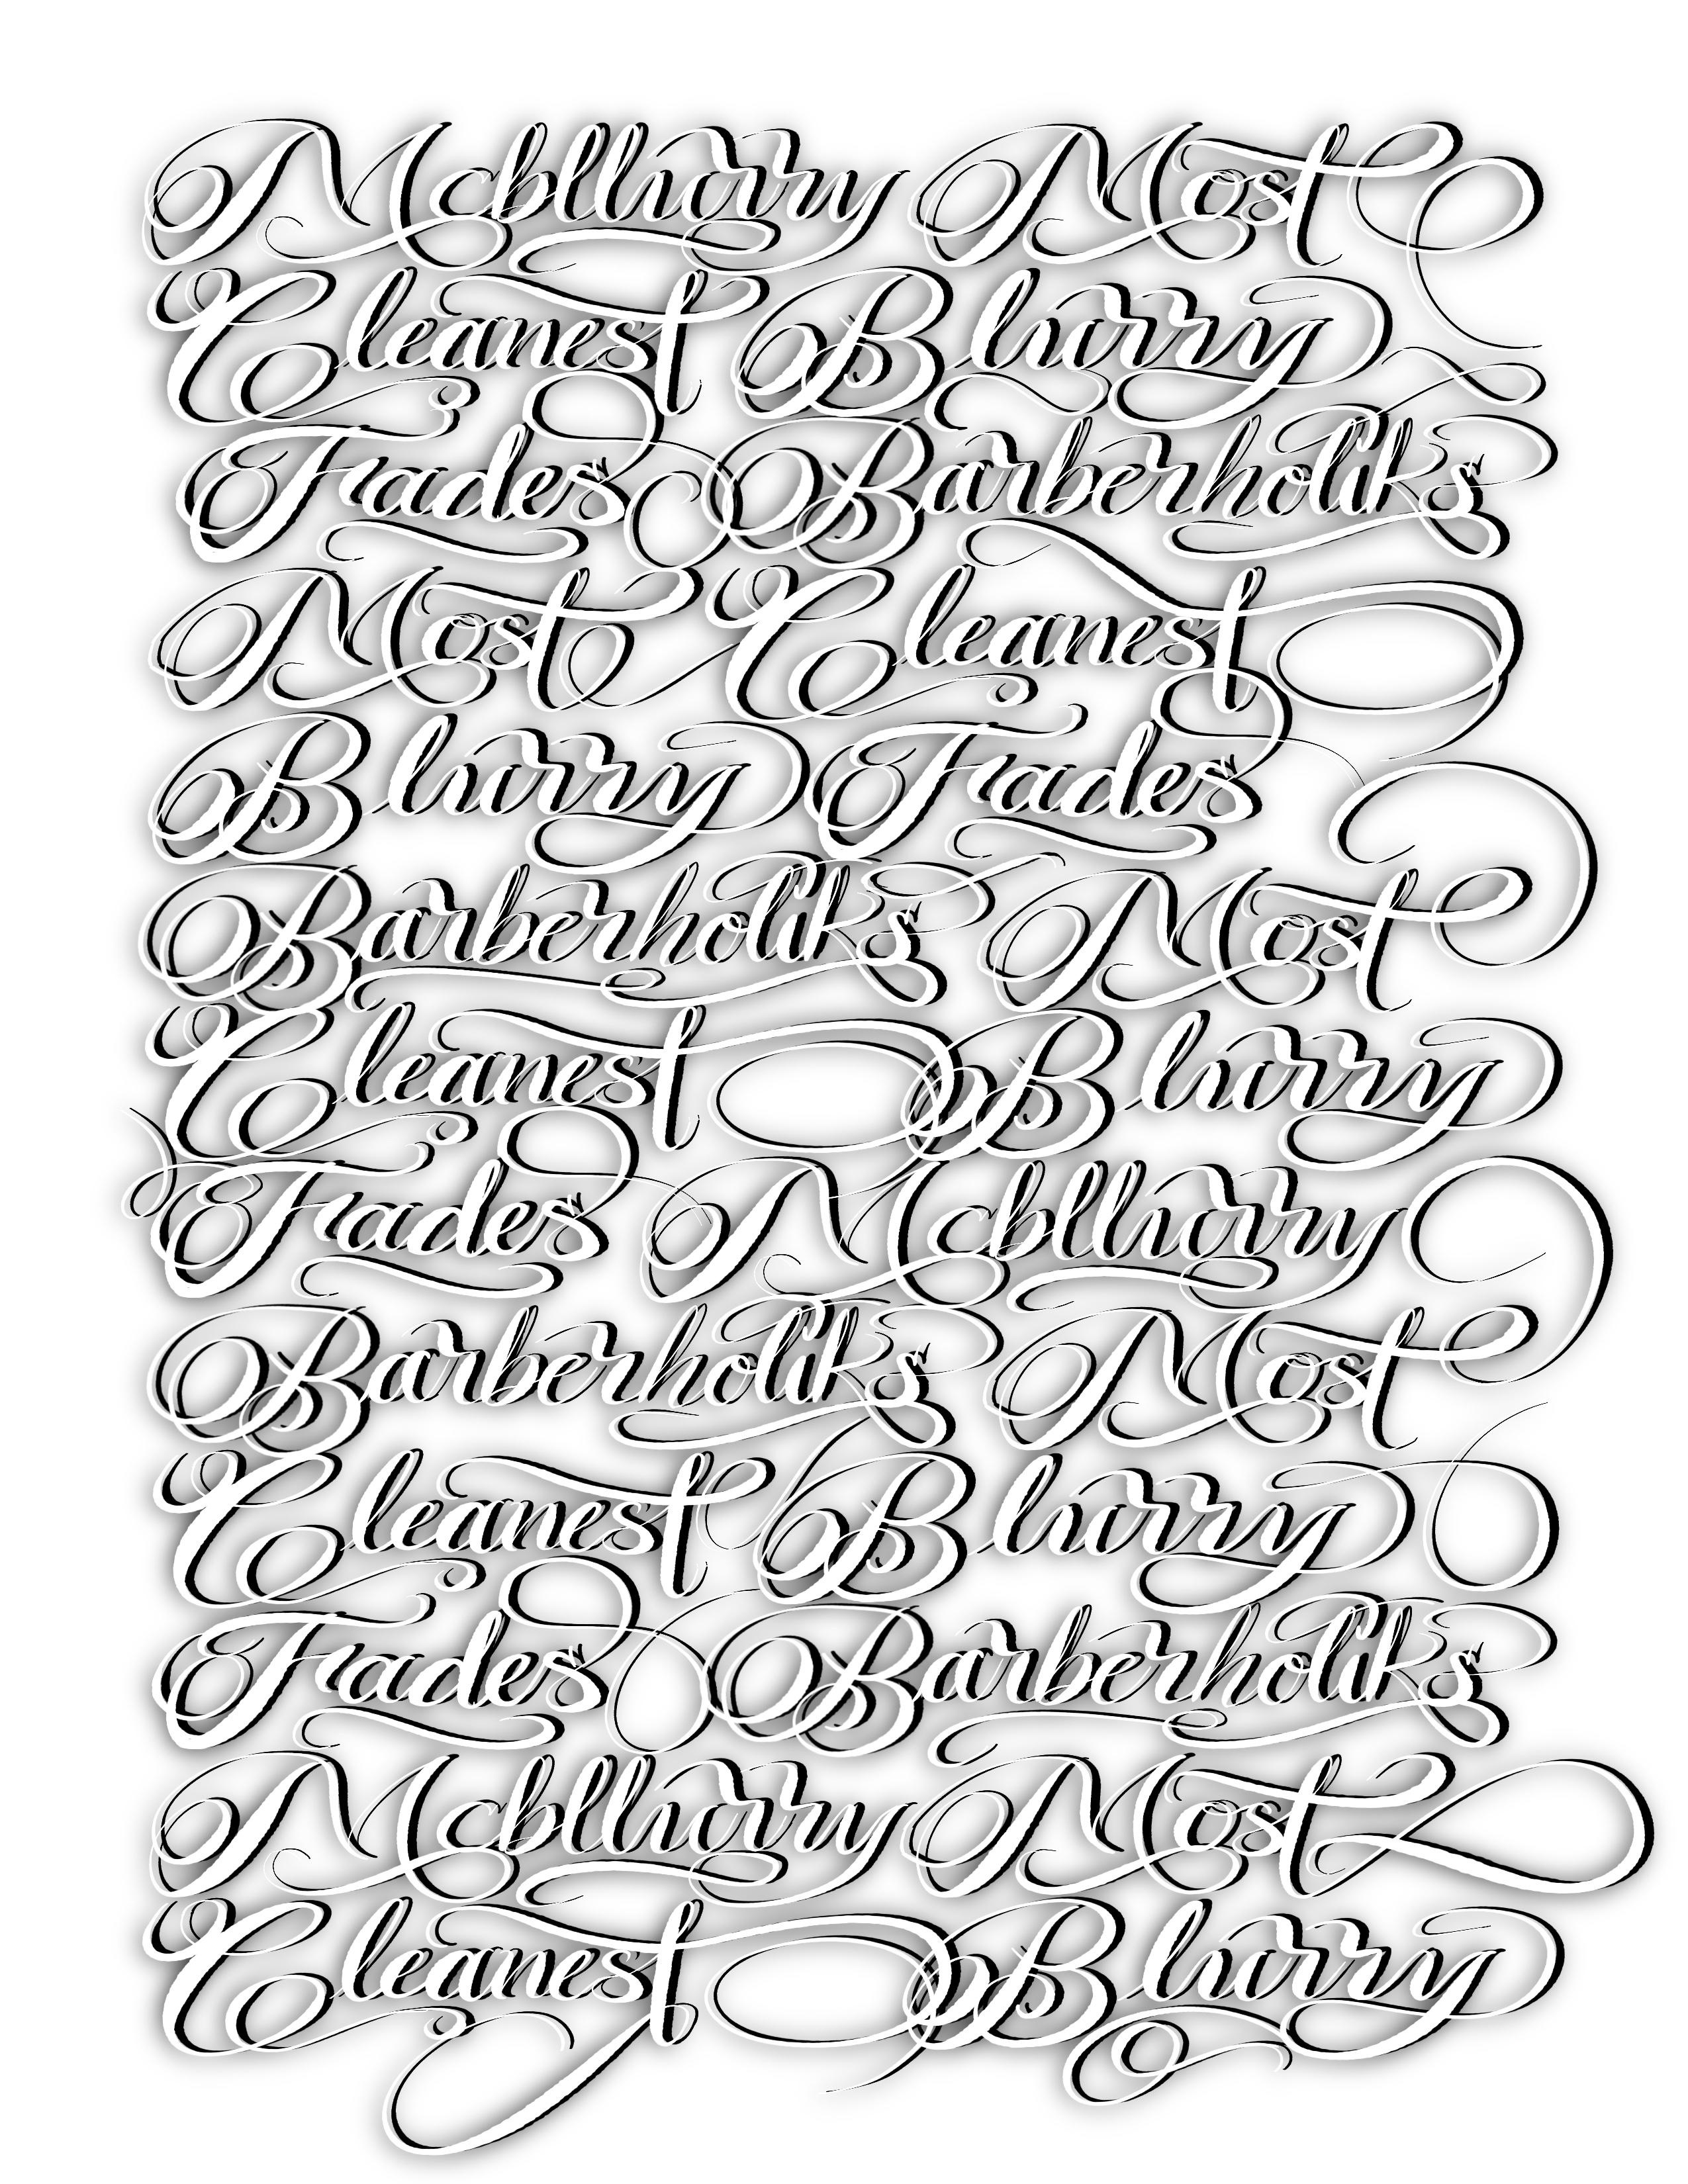 Mcbllurry Most
Cleanest Blurry
Fades Barberholiks
Most Cleanest
Blurry Fades
Barberholiks Most
Cleanest Blurry
Fades Mcbllurry
Barberholiks Most
Cleanest Blurry
Fades Barberholiks
Mcbllurry Most
Cleanest Blurry